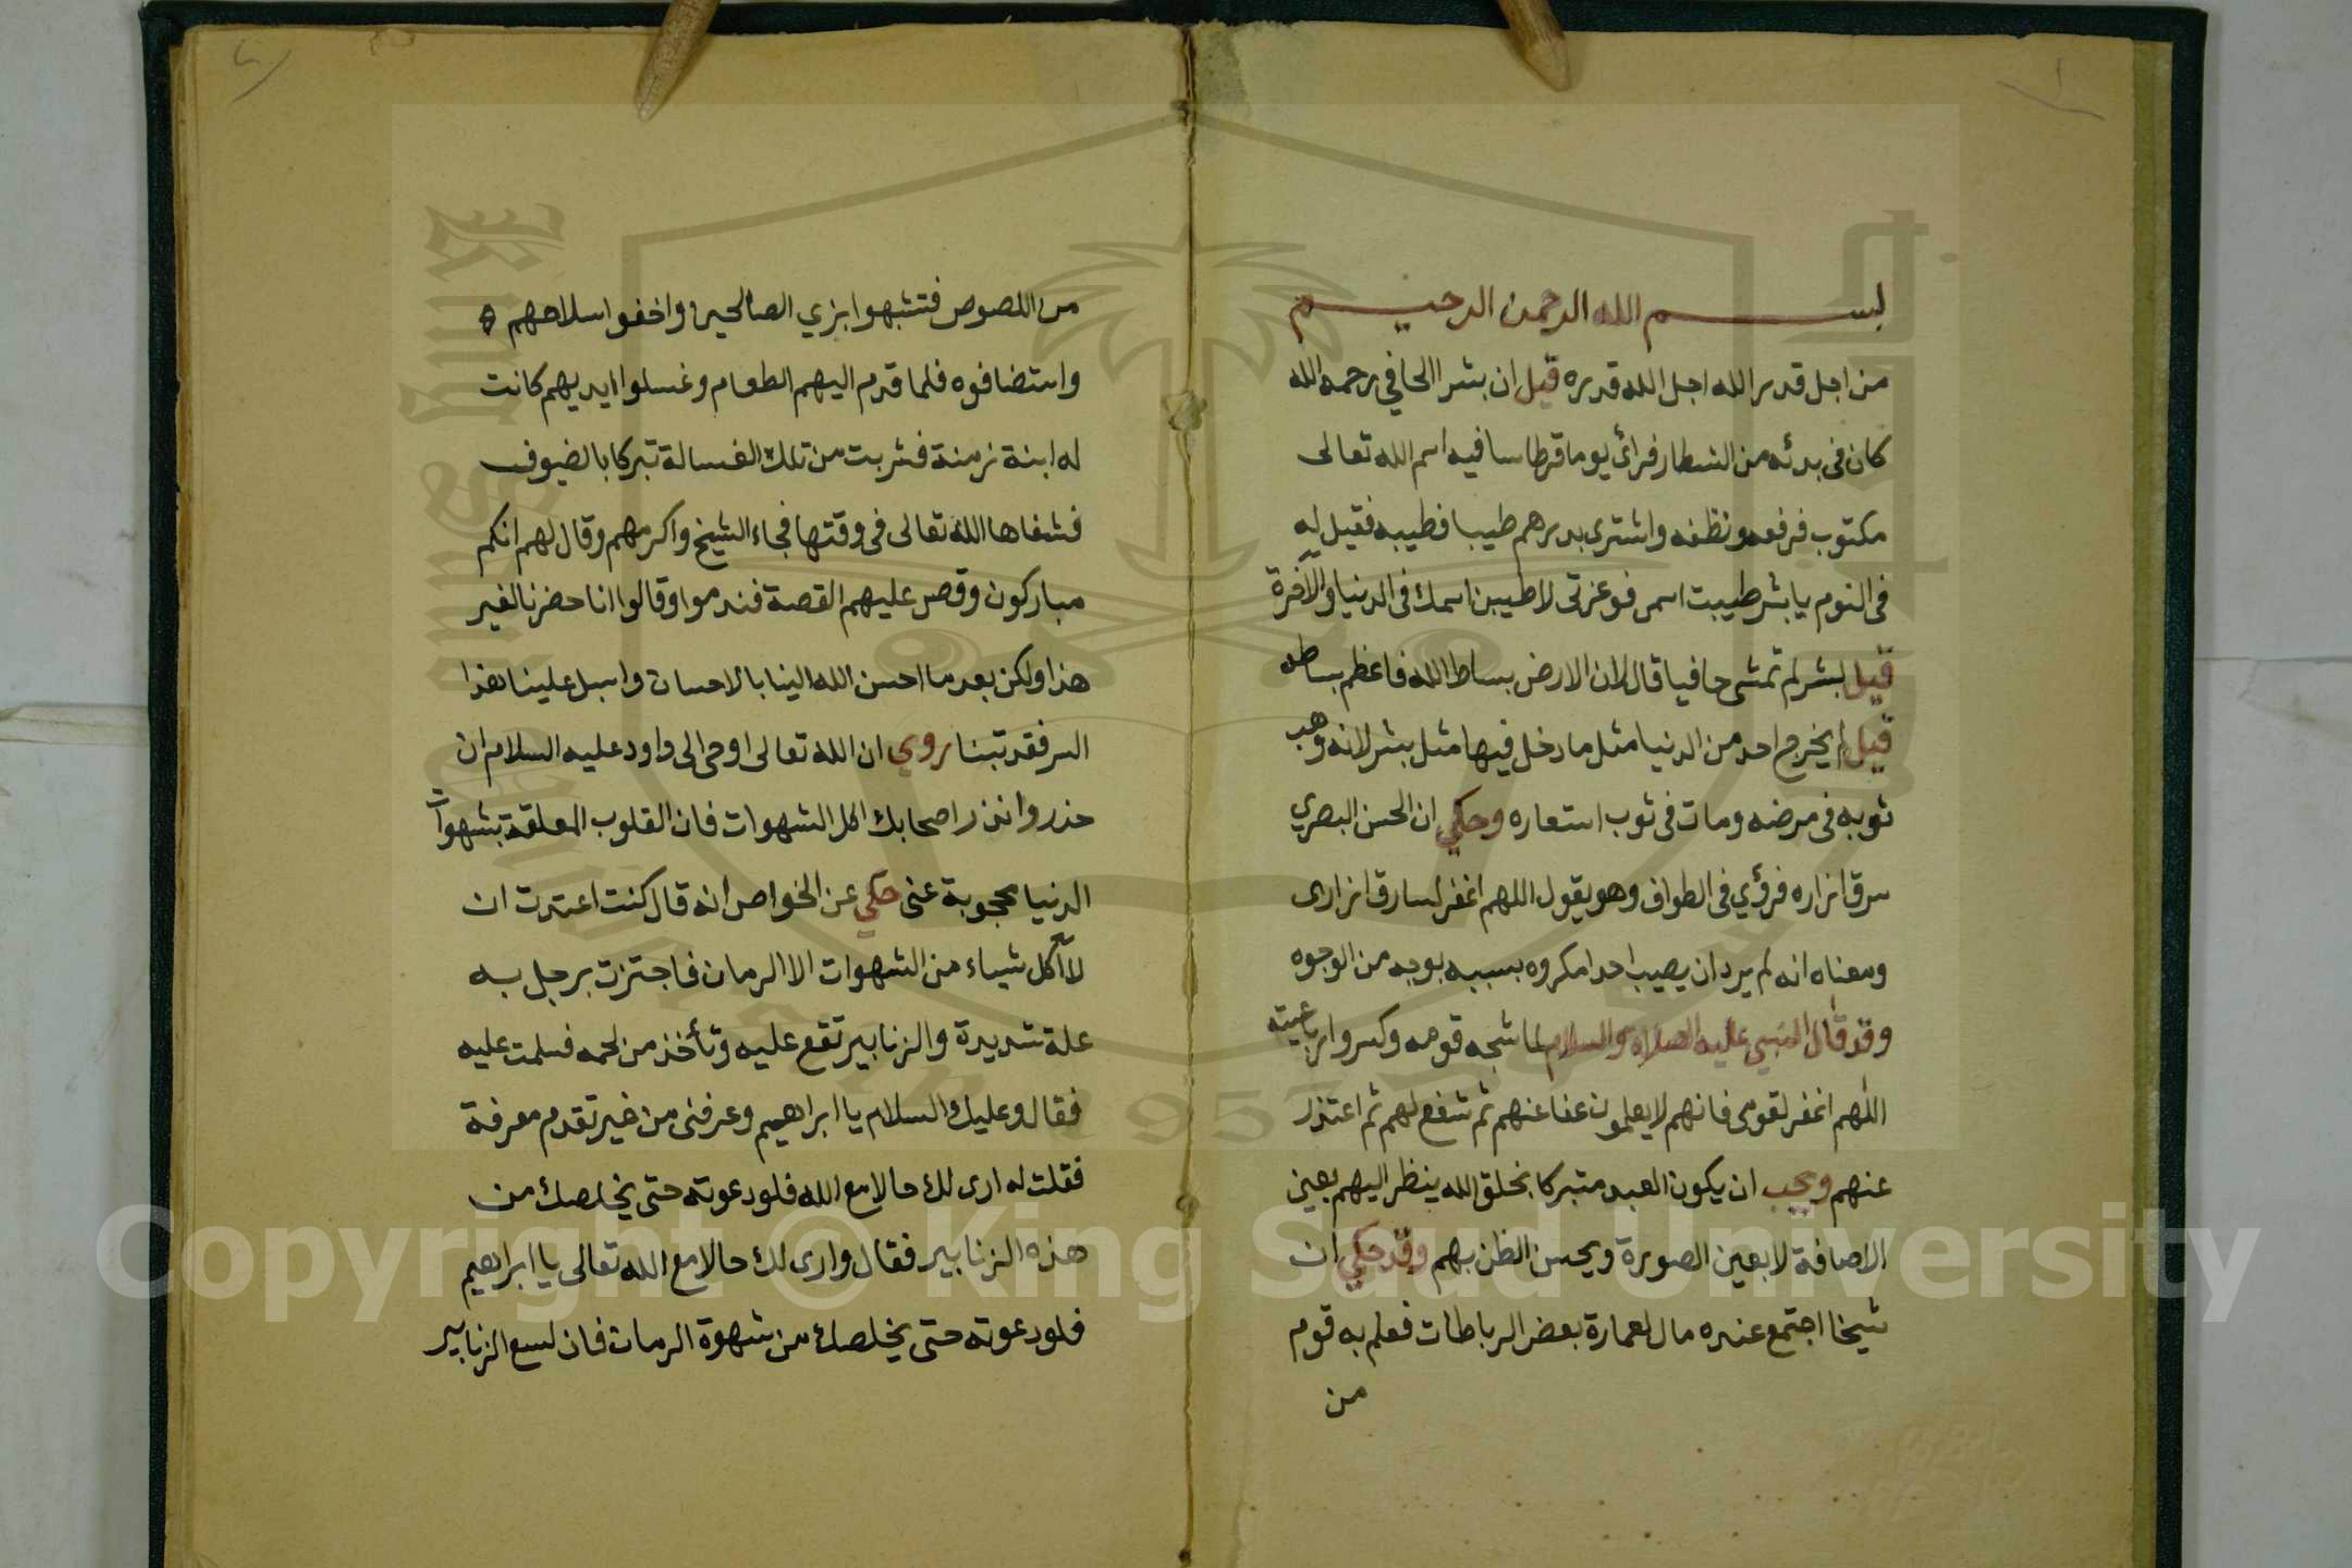 ١
بسم الله الرحمن الرحيم
من اجل قدر الله اجل الله قدره قيل ان بشرا الحافي رحمه الله
كان فى بدئه من الشطار فرائ يوما قرطاسا فيه اسم الله تعالى
مكتوب فرفعه ونظفه واشترى بدرهم طيبا فطيبه فقيل له
فى النوم يا بشر طيبت اسمى فوعزتى لاطيبن اسمك فى الدنيا والآخرة
قيل لبشر لم تمشى حافيا قال لان الارض بساط الله فاعظم بساطه
قيل لم يخرج احد من الدنيا مثل ما دخل فيها مثل بشر لانه وهب
ثوبه فى مرضه ومات فى ثوب استعاره وحكي ان الحسن البصري
سرق ازاره فرؤي فى الطواف وهو يقول اللهم اغفر لسارق ازارى
ومعناه انه لم يرد ان يصيب احدا مكروه بسببه بوجه من الوجوه
وقد قال النبي عليه الصلاة والسلام لما شجه قومه وكسروا رباعيته
اللهم اغفر لقومى فانهم لا يعلمون عفا عنهم ثم شفع لهم ثم اعتذر
عنهم ويجب ان يكون العبد متبركا بخلق الله ينظر اليهم بعين
الاضافة لا بعين الصورة ويحسن الظن بهم وقد حكي ان
شيخا اجتمع عنده مال لعمارة بعض الرباطات فعلم به قوم
من
من اللصوص فتشبهوا بزي الصالحين واخفوا سلاحهم
واستضافوه فلما قدم اليهم الطعام وغسلوا ايديهم كانت
له ابنة زمنة فشربت من تلك الغسالة تبركا بالضيوف
فشفاها الله تعالى فى وقتها فجاء الشيخ واكرمهم وقال لهم انكم
مباركون وقص عليهم القصة فندموا وقالوا انا حضرنا لغير
هذا ولكن بعد ما احسن الله الينا بالاحسان واسبل علينا هذا
السر فقد تبنا روي ان الله تعالى اوحى الى داود عليه السلام ان
حذر وانذر اصحابك اكل الشهوات فان القلوب المعلقة بشهوات
الدنيا محجوبة عنى حكي عن الخواص انه قال كنت اعتدت ان
لا آكل شياء من الشهوات الا الرمان فاجتزت برجل به
علة شديدة والزنابير تقع عليه وتأخذ من لحمه فسلمت عليه
فقال وعليك السلام يا ابراهيم وعرفنى من غير تقدم معرفة
فقلت له ارى لك حالا مع الله فلو دعوته حتى يخلصك من
هذه الزنابير فقال وارى لك حالا مع الله تعالى يا ابراهيم
فلو دعوته حتى يخلصك من شهوة الرمان فان لسع الزنابير
Copyright © King Saud University